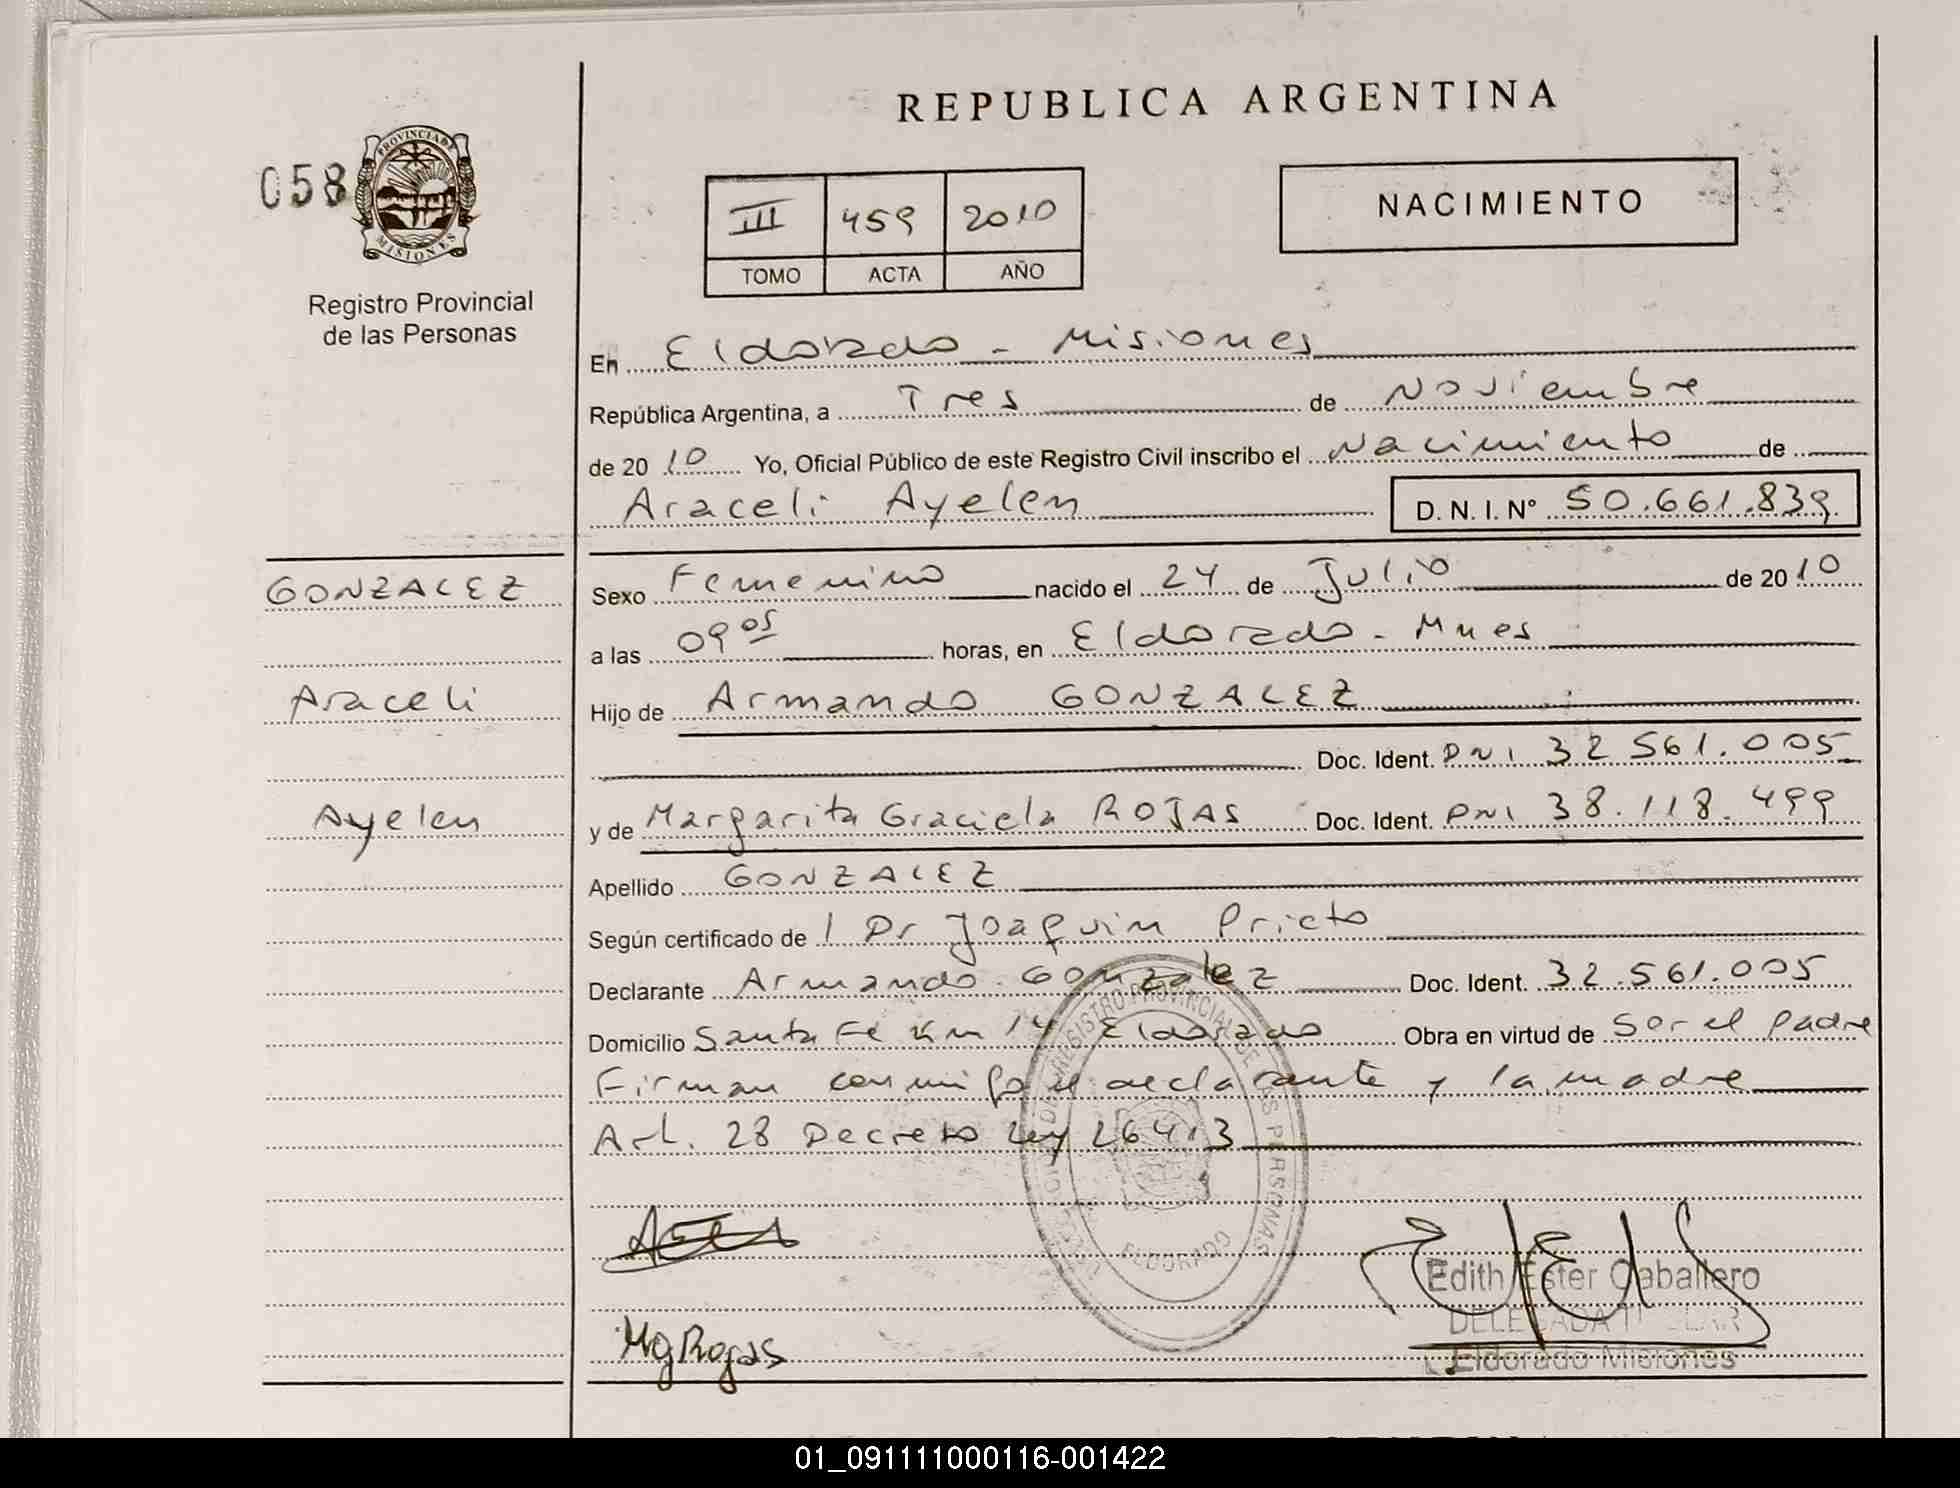 REPUBLICA ARGENTINA
058
PROVINCIA DE
MISIONES
Registro Provincial
de las Personas
III 459 2010
TOMO ACTA AÑO
NACIMIENTO
En Eldorado - Misiones
República Argentina, a Tres de Noviembre
de 2010 Yo, Oficial Público de este Registro Civil inscribo el Nacimiento de
Araceli Ayelen D. N. I. Nº 50.661.839
GONZALEZ
Araceli
Ayelen
Sexo Femenino nacido el 24 de Julio de 2010
a las 09 05 horas, en Eldorado - Mnes
Hijo de Armando GONZALEZ
Doc. Ident. DNI 32.561.005
y de Margarita Graciela ROJAS Doc. Ident. DNI 38.118.499
Apellido GONZALEZ
Según certificado de / Dr Joaquin Prieto
Declarante Armando Gonzalez Doc. Ident. 32.561.005
Domicilio Santa Fe Km 14 Eldorado Obra en virtud de Ser el padre
Firman conmigo el declarante y la madre
Art. 28 Decreto Ley 26413
REGISTRO PROVINCIAL DE LAS PERSONAS
ELDORADO
Mg Rojas
Edith Ester Caballero
DELEGADA TITULAR
Eldorado Misiones
01_091111000116-001422